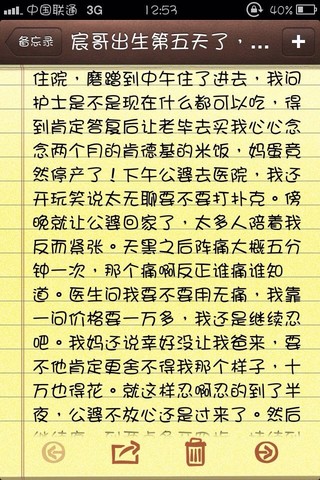 中国联通 3G 12:53 40%
备忘录 宸哥出生第五天了，...
住院，磨蹭到中午住了进去，我问
护士是不是现在什么都可以吃，得
到肯定答复后让老毕去买我心心念
念两个月的肯德基的米饭，妈蛋竟
然停产了！下午公婆去医院，我还
开玩笑说太无聊要不要打扑克。傍
晚就让公婆回家了，太多人陪着我
反而紧张。天黑之后阵痛大概五分
钟一次，那个痛啊反正谁痛谁知
道。医生问我要不要用无痛，我靠
一问价格要一万多，我还是继续忍
吧。我妈还说幸好没让我爸来，要
不他肯定更舍不得我那个样子，十
万也得花。就这样忍啊忍的到了半
夜，公婆不放心还是过来了。然后